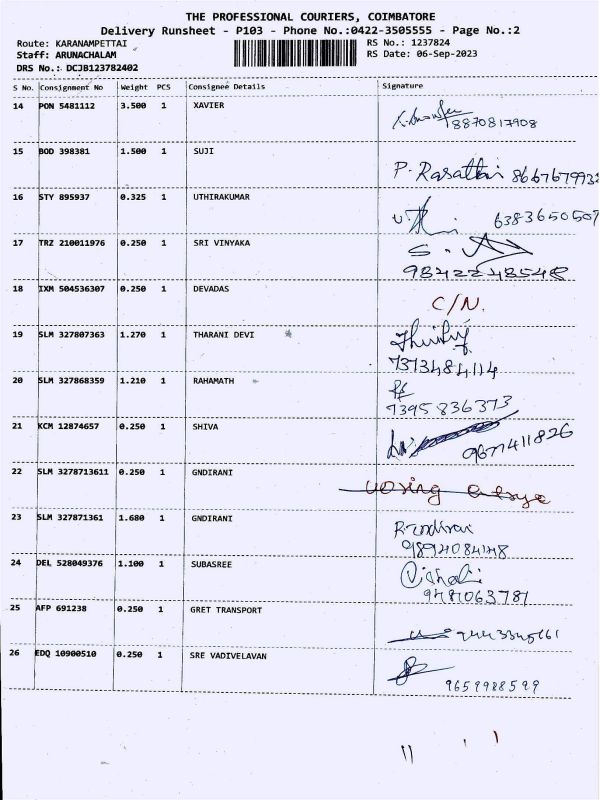 THE PROFESSIONAL COURIERS, COIMBATORE
Delivery Runsheet - P103 - Phone No.:0422-3505555 - Page No.:2
Route: KARANAMPETTAI RS No.: 1237824
Staff: ARUNACHALAM RS Date: 06-Sep-2023
DRS No.: DCJB123782402
S No. Consignment No Weight PCS Consignee Details Signature
14 PON 5481112 3.500 1 XAVIER
8870817908
15 BOD 398381 1.500 1 SUJI
P. Rasathi 8667679932
16 STY 895937 0.325 1 UTHIRAKUMAR
6383650507
17 TRZ 210011976 0.250 1 SRI VINYAKA
9842248548
18 IXM 504536307 0.250 1 DEVADAS
C/N.
19 SLM 327807363 1.270 1 THARANI DEVI
7373484114
20 SLM 327868359 1.210 1 RAHAMATH
7395 836373
21 KCM 12874657 0.250 1 SHIVA
9677411826
22 SLM 3278713611 0.250 1 GNDIRANI
23 SLM 327871361 1.680 1 GNDIRANI
9894084148
24 DEL 528049376 1.100 1 SUBASREE
25 AFP 691238 0.250 1 GRET TRANSPORT
26 EDQ 10900510 0.250 1 SRE VADIVELAVAN
9659988599